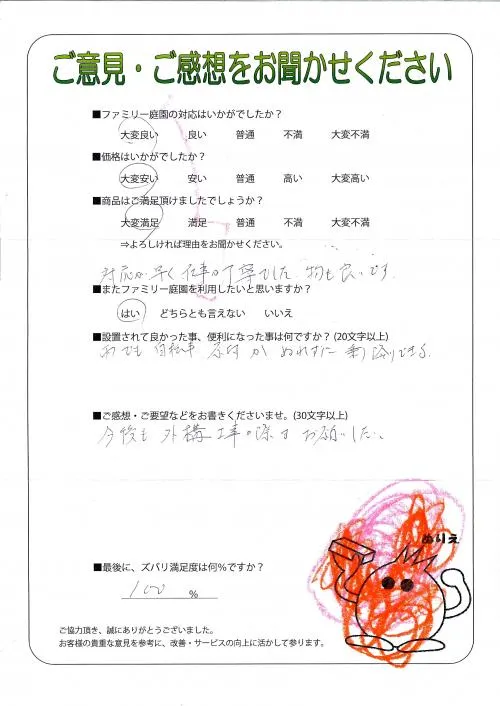 ご意見・ご感想をお聞かせください
■ファミリー庭園の対応はいかがでしたか？
大変良い 良い 普通 不満 大変不満
■価格はいかがでしたか？
大変安い 安い 普通 高い 大変高い
■商品はご満足頂けましたでしょうか？
大変満足 満足 普通 不満 大変不満
⇒よろしければ理由をお聞かせください。
対応が早く仕事が丁寧でした。物も良いです。
■またファミリー庭園を利用したいと思いますか？
はい どちらとも言えない いいえ
■設置されて良かった事、便利になった事は何ですか？(20文字以上)
雨でも 自転車 原付 が ぬれずに 乗り降りできる。
■ご感想・ご要望などをお書きくださいませ。(30文字以上)
今後も 外構工事の際は お願いしたい。
ぬりえ
■最後に、ズバリ満足度は何％ですか？
100 %
ご協力頂き、誠にありがとうございました。
お客様の貴重な意見を参考に、改善・サービスの向上に活かして参ります。